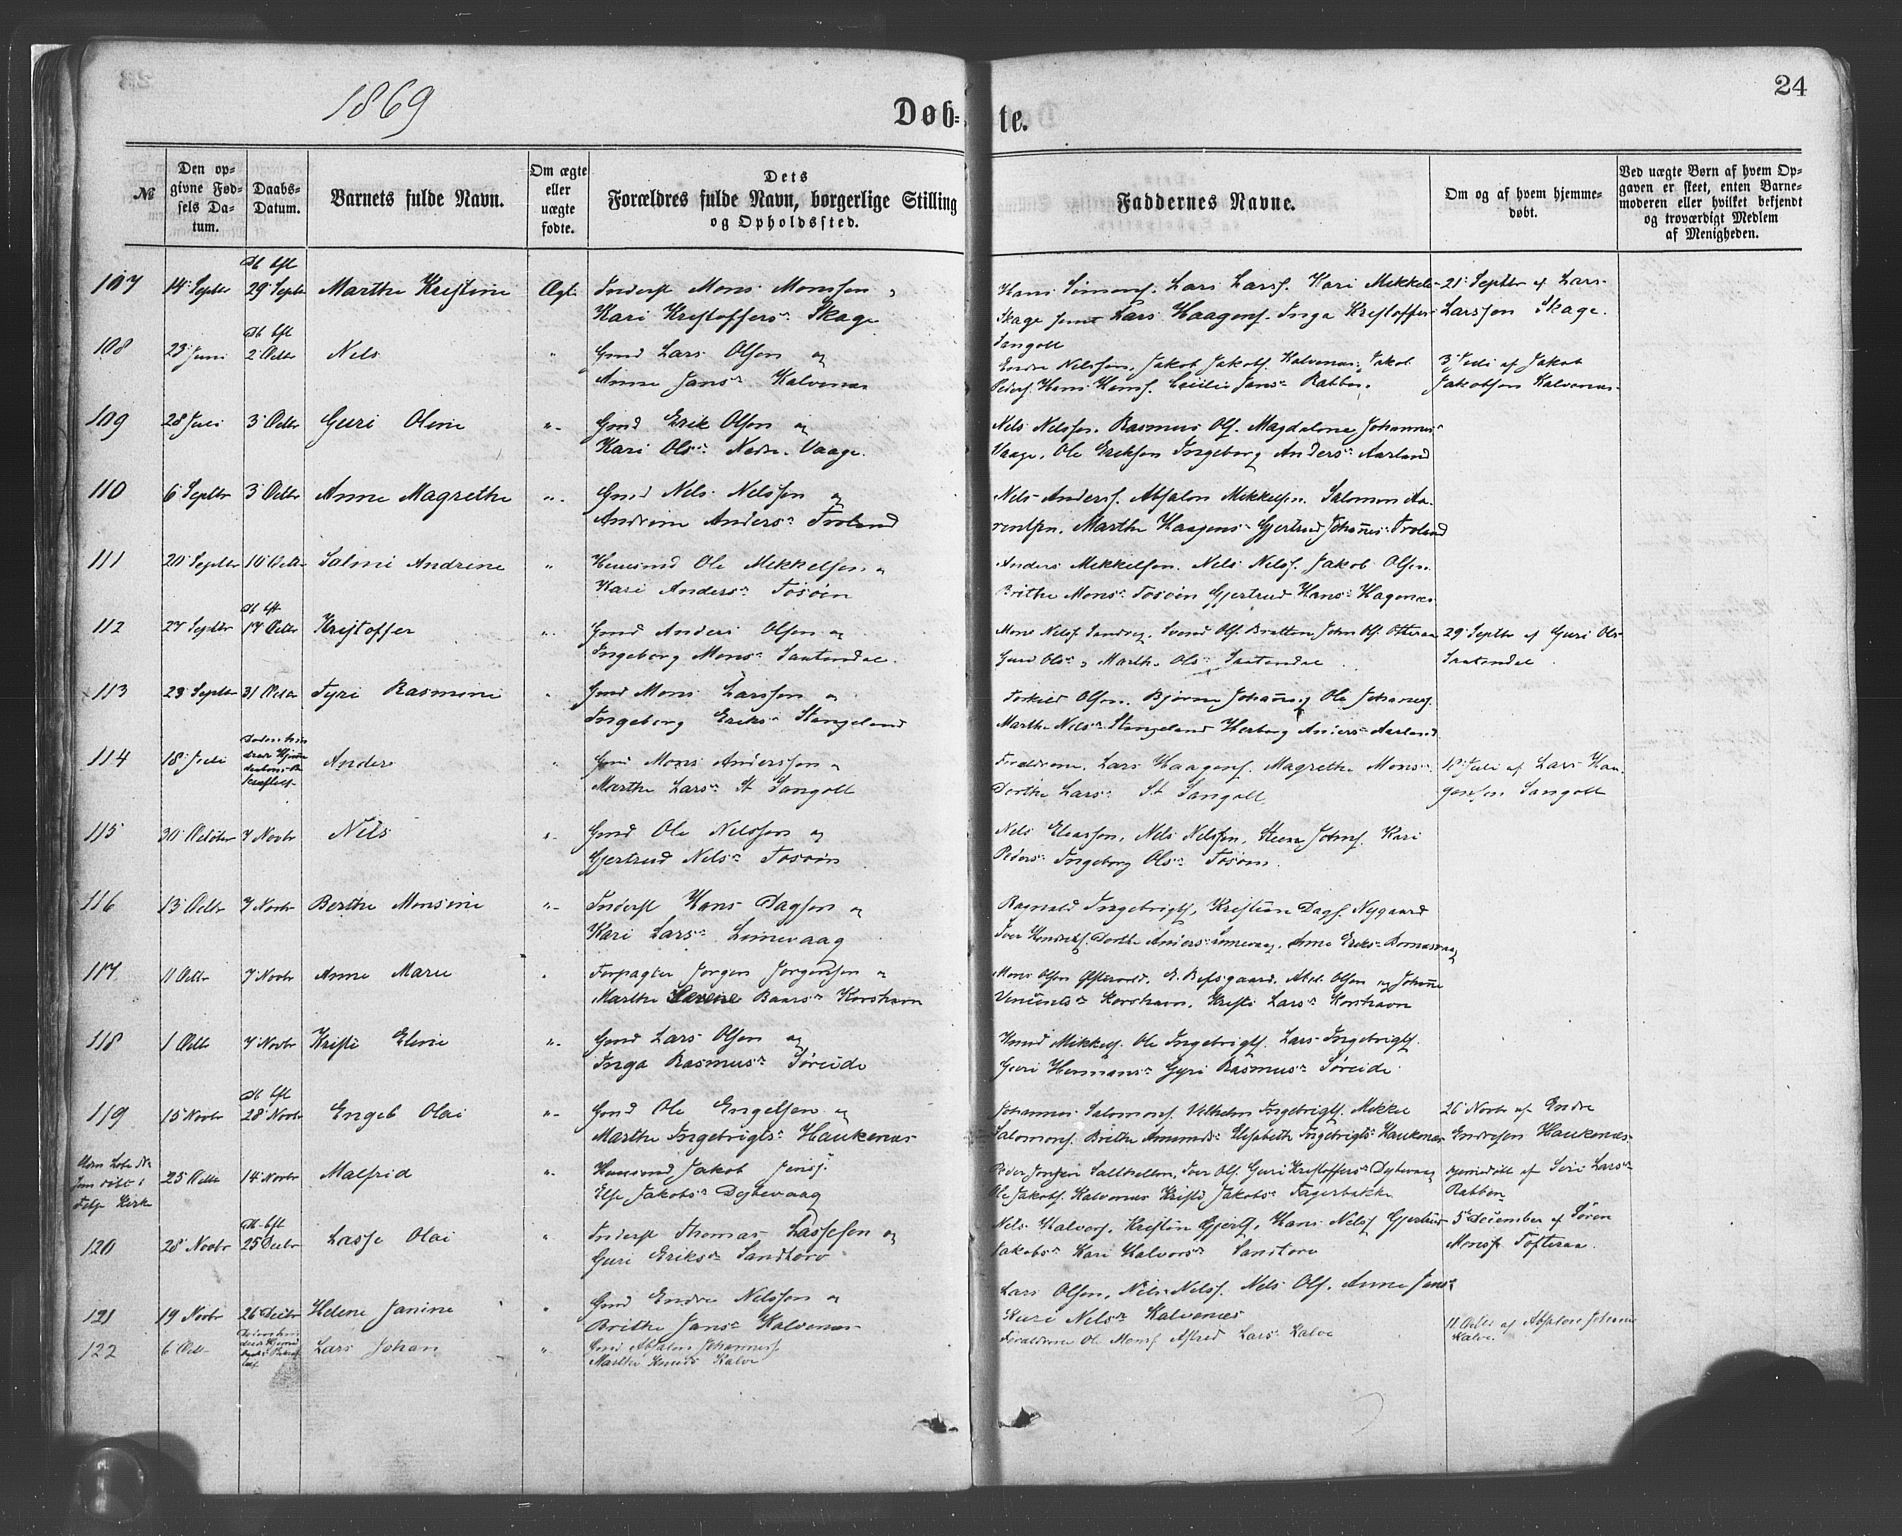 1869
24
Døb-te.
№
Den opgivne Fødsels Datum.
Daabs-Datum.
Barnets fulde Navn.
Om ægte eller uægte fødte.
Dets Forældres fulde Navn, borgerlige Stilling og Opholdssted.
Faddernes Navne.
Om og af hvem hjemmedøbt.
Ved uægte Børn af hvem Opgaven er skeet, enten Barnemoderen eller hvilket bekjendt og troværdigt Medlem af Menigheden.
107 14 Septbr 29 Septbr Marthe Kristine Ægte Inderst Mons Monssen
Kari Kristoffersdr Skage
Hans Simons. Lars Larss. Kari Mikkels
Skage samt Lars Haagens. Inga Kristoffers
Sangolt
21 Septbr af Lars
Larssen Skage.
108 23 Juni 2 Octbr Nels " Gmd Lars Olsen og
Anne Jansdr Kalvenæs
Endre Nelssen, Jakob Jakobs. Kalvenæs, Jakob
Peders. Hans Hans. Cecilie Jansdr Rabben.
3 Juli af Jakob
Jakobsen Kalvenæs
109 28 Juli 3 Octbr Guri Oline " Gmd Erik Olsen og
Kari Olsdr Nedre Vaage.
Nels Nelssen. Rasmus Ols. Magdalena Johannes
Vaage. Ole Eriksen Ingeborg Andersdr Aarland
110 6 Septbr 3 Octbr Anne Magrethe " Gmd Nels Nelssen og
Andrine Andersdr Troland
Nels Anderss. Absalon Mikkelsen. Salomon Aa-
rentsen. Marthe Haagens Gjertrud Johannes Troland
111 20 Septbr 10 Octbr Salmi Andrine " Huusmd Ole Mikkelsen og
Kari Andersdr Tosøen
Anders Mikkelsen. Nels Nelss. Jakob Olsen.
Brithe Monsdr Tosøen Gjertrud Hansdr Hagenæs
112 27 Septbr 17 Octbr Kristoffer " Gmd Anders Olsen og
Ingeborg Monsdr Sautendal.
Mons Nelss Sandvig. Svend Ols. Bratten John Ols. Ofteraa
Guri Olsdr, Marthe Olsdr Sautendal
29 Septbr af Guri Ols
Sautendal
113 23 Septbr 31 Octbr Tyri Rasmine " Gmd Mons Larssen og
Ingeborg Eriksdr Stangeland
Torkild Olsen. Bjørne Johannes Ole Johannes.
Marthe Nelsdr Stangeland Herborg Anders Aarland.
114 18 Juli Anders " Gmd Mons Anderssen og
Marthe Larsdr St Sangolt
Forældrene. Lars Haagens. Magrethe Mons
Dorthe Larsdr St Sangolt
18 Juli af Lars Haa-
gensen Sangolt
115 30 October 7 Novbr Nils " Gmd Ole Nelssen og
Gjertrud Nelsdr Tosøen
Nels Eliassen, Nels Nelssen, Steen Johns. Kari
Pedersdr Ingeborg Olsdr Tosøen.
116 13 Octbr 7 Novbr Berthe Monsine " Inderst Hans Dagsen og
Kari Larsdr Limevaag
Ragnald Ingebrigts, Kristian Dags. Nygaard
Iver Hendriks. Dorthe Anders Limevaag, Anna Eriks Bornevaag
117 11 Octbr 7 Novbr Anne Marie " Forpagter Jørgen Jørgensen og
Marthe Serene Baarsdr Korshavn
Mons Olsen Østervold, E. Bessgaard. Abel Olsen og Johanne
Korshavn, Kristi Larsdr Korshavn
118 1 Octbr 7 Novbr Kristi Elene " Gmd Lars Olsen og
Inga Rasmusdr Søreide
Knud Mikkels. Ole Ingebrigts. Lars Ingebrigts.
Guri Hermansdr Gyri Rasmusdr Søreide.
119 15 Novbr 28 Novbr Engel Olai " Gmd Ole Engelsen og
Marthe Ingebrigtsdr Haukenæs
Johannes Salomons. Vilhelm Ingebrigts. Mikkel
Salomons. Brithe Amundsdr Elisabeth Ingebrigts Haukenæs
26 Novbr af Endre
Endresen Haukenæs
25 Octbr 14 Novbr Malfrid " Huusmd Jakob Jenss.
Else Jakobsdr Dybevaag
Peder Jørgen Saltkelten, Iver Ols. Guri Kristoffersdr Dybevaag
Ole Jakobs. Kalvenæs Kristi Jakobsdr Fagerbakke
hjemmedøbt af Siri Larsdr
Rabben
120 28 Novbr 25 Decbr Lasse Olai " Inderst Thomas Lassesen og
Guri Eriksdr Sandtorv
Nels Halvors, Kristen Gjert, Hans Nelss Gjertrud
Jakobsdr Kari Halvorsdr Sandtorv
5 December af Søren
Monss Tofteraa.
121 19 Novbr 26 Decbr Helene Janine " Gmd Endre Nelssen og
Brithe Jansdr Kalvenæs
Lars Olsen, Nils Nelss. Nels Ols. Anna Jansdr
Kari Nelsdr Kalvenæs
122 6 Octbr Lars Johan " Gmd Absalon Johanness
Marthe Knuds Kalve
Forældrene Ole Monss Astrid Larsdr Kalve
11 Octbr af Absalon Johannes
Kalve.